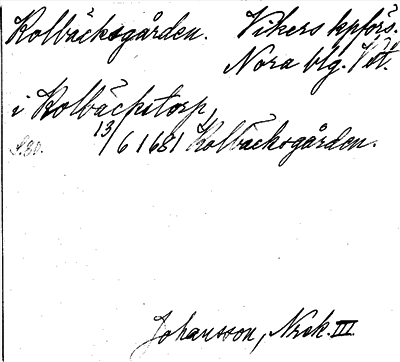 Kolbäcksgården. Vikers kpförs.
Nora blg. Vstl.
i Kolbäckstorp
S.30. 13/6 1681 Kolbäcksgården.
Johansson, Nrek. III